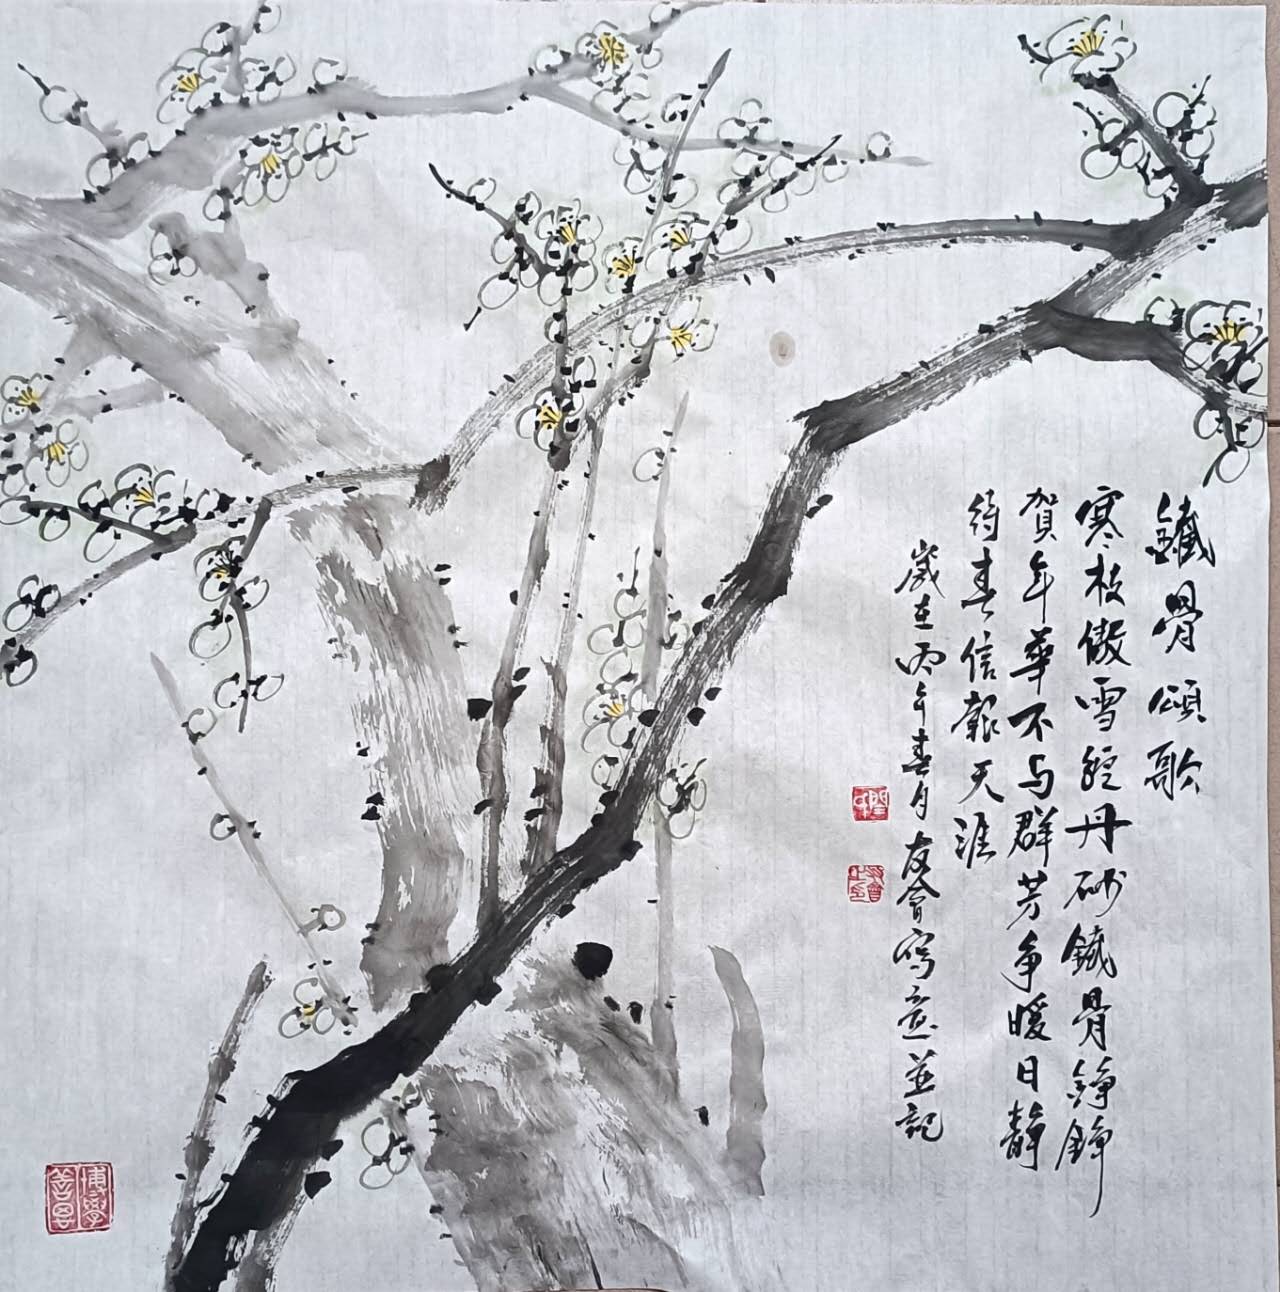 鐵骨頌歌
寒枝傲雪綻丹砂鐵骨錚錚
賀年華不与群芳争暖日静
待春信報天涯
歲在丙午春月友會寫意並記
博學
善思